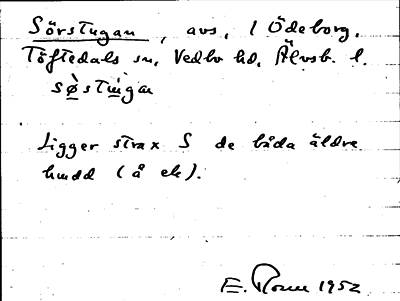 Sörstugan, avs. i Ödeborg,
Töftedals sn, Vedbo hd, Älvsb. l.
sø̀stu̇gan
Ligger strax S de båda äldre
hmdd (å ek).
E. 1952